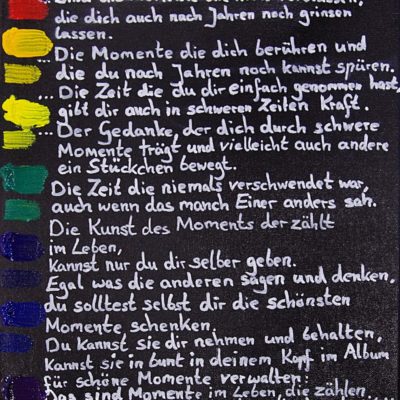 die dich auch nach Jahren noch grinsen
lassen.
...Die Momente die dich berühren und
die du nach Jahren noch kannst spüren.
...Die Zeit die du dir einfach genommen hast,
gibt dir auch in schweren Zeiten Kraft.
...Der Gedanke, der dich durch schwere
Momente trägt und vielleicht auch andere
ein Stückchen bewegt.
Die Zeit die niemals verschwendet war,
auch wenn das manch Einer anders sah.
Die Kunst des Moments der zählt
im Leben,
kannst nur du dir selber geben.
Egal was die anderen sagen und denken,
du solltest selbst dir die schönsten
Momente schenken.
Du kannst sie dir nehmen und behalten,
kannst sie in bunt in deinem Kopf im Album
für schöne Momente verwalten.
Das sind Momente im Leben, die zählen...